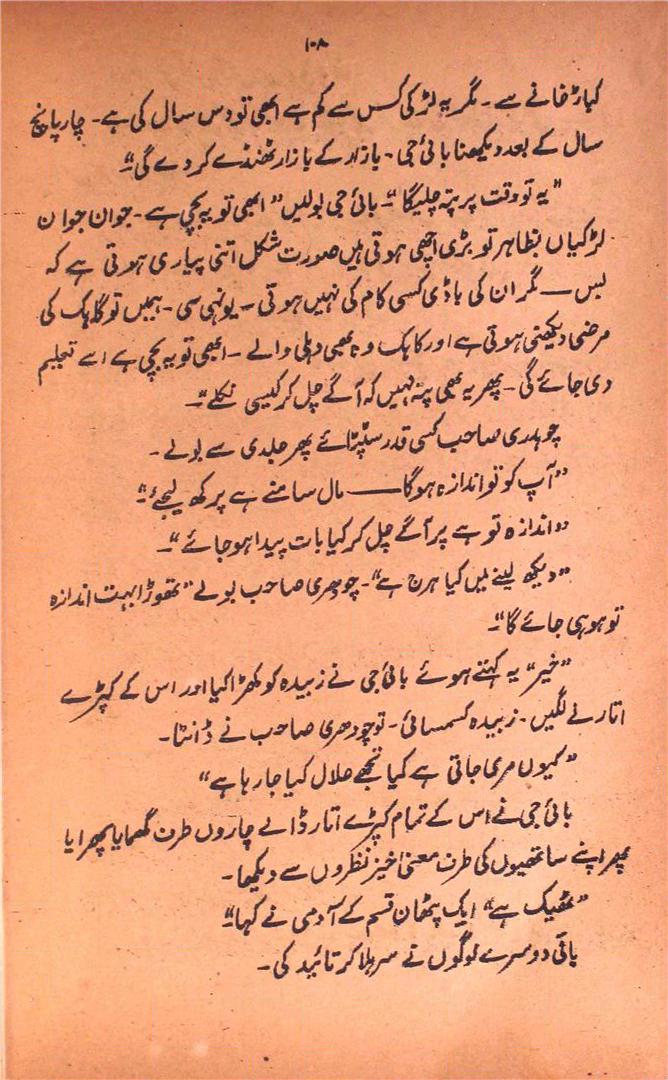 ۱۰۸
کباڑخانے ہے ۔ مگر یہ لڑکی کس سے کم ہے ابھی تو دس سال کی ہے ۔ چار پانچ
سال کے بعد دیکھنا بائی جی ۔ بازار کے بازار ٹھنڈے کر دے گی"۔
"یہ تو وقت پر پتہ چلیگا"۔ بائی جی بولیں "ابھی تو یہ بچی ہے ۔ جوان جوان
لڑکیاں بظاہر تو بڑی اچھی ہوتی ہیں صورت شکل اتنی پیاری ہوتی ہے کہ
بس — مگر ان کی باڈی کسی کام کی نہیں ہوتی ۔ یونہی سی ۔ ہمیں تو گاہک کی
مرضی دیکھنی ہوتی ہے اور گاہک وہ بھی دہلی والے ۔ ابھی تو یہ بچی ہے اسے تعلیم
دی جائے گی ۔ پھر یہ بھی پتہ نہیں کہ آگے چل کر کیسی نکلے"۔
چوہدری صاحب کسی قدر سٹپٹائے پھر جلدی سے بولے ۔
"آپ کو تو اندازہ ہوگا — مال سامنے ہے پرکھ لیجئے"۔
"اندازہ تو ہے پر آگے چل کر کیا بات پیدا ہو جائے"۔
"دیکھ لینے میں کیا ہرج ہے"۔ چودھری صاحب بولے "تھوڑا بہت اندازہ
تو ہو ہی جائے گا"۔
"خیر" یہ کہتے ہوئے بائی جی نے زبیدہ کو کھڑا کیا اور اس کے کپڑے
اتارنے لگیں ۔ زبیدہ کسمسائی ۔ تو چودھری صاحب نے ڈانٹا ۔
"کیوں مری جاتی ہے کیا تجھے حلال کیا جا رہا ہے"
بائی جی نے اس کے تمام کپڑے اتار ڈالے چاروں طرف گھمایا پھرایا
پھر اپنے ساتھیوں کی طرف معنی خیز نظروں سے دیکھا ۔
"ٹھیک ہے" ایک پٹھان قسم کے آدمی نے کہا"۔
باقی دوسرے لوگوں نے سر ہلا کر تائید کی ۔